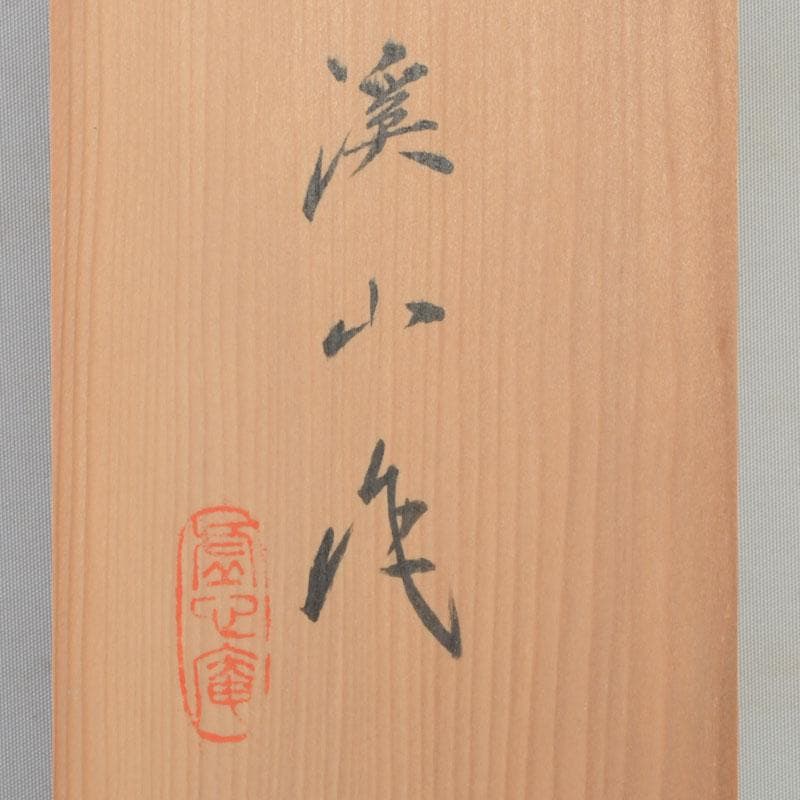 溪山作